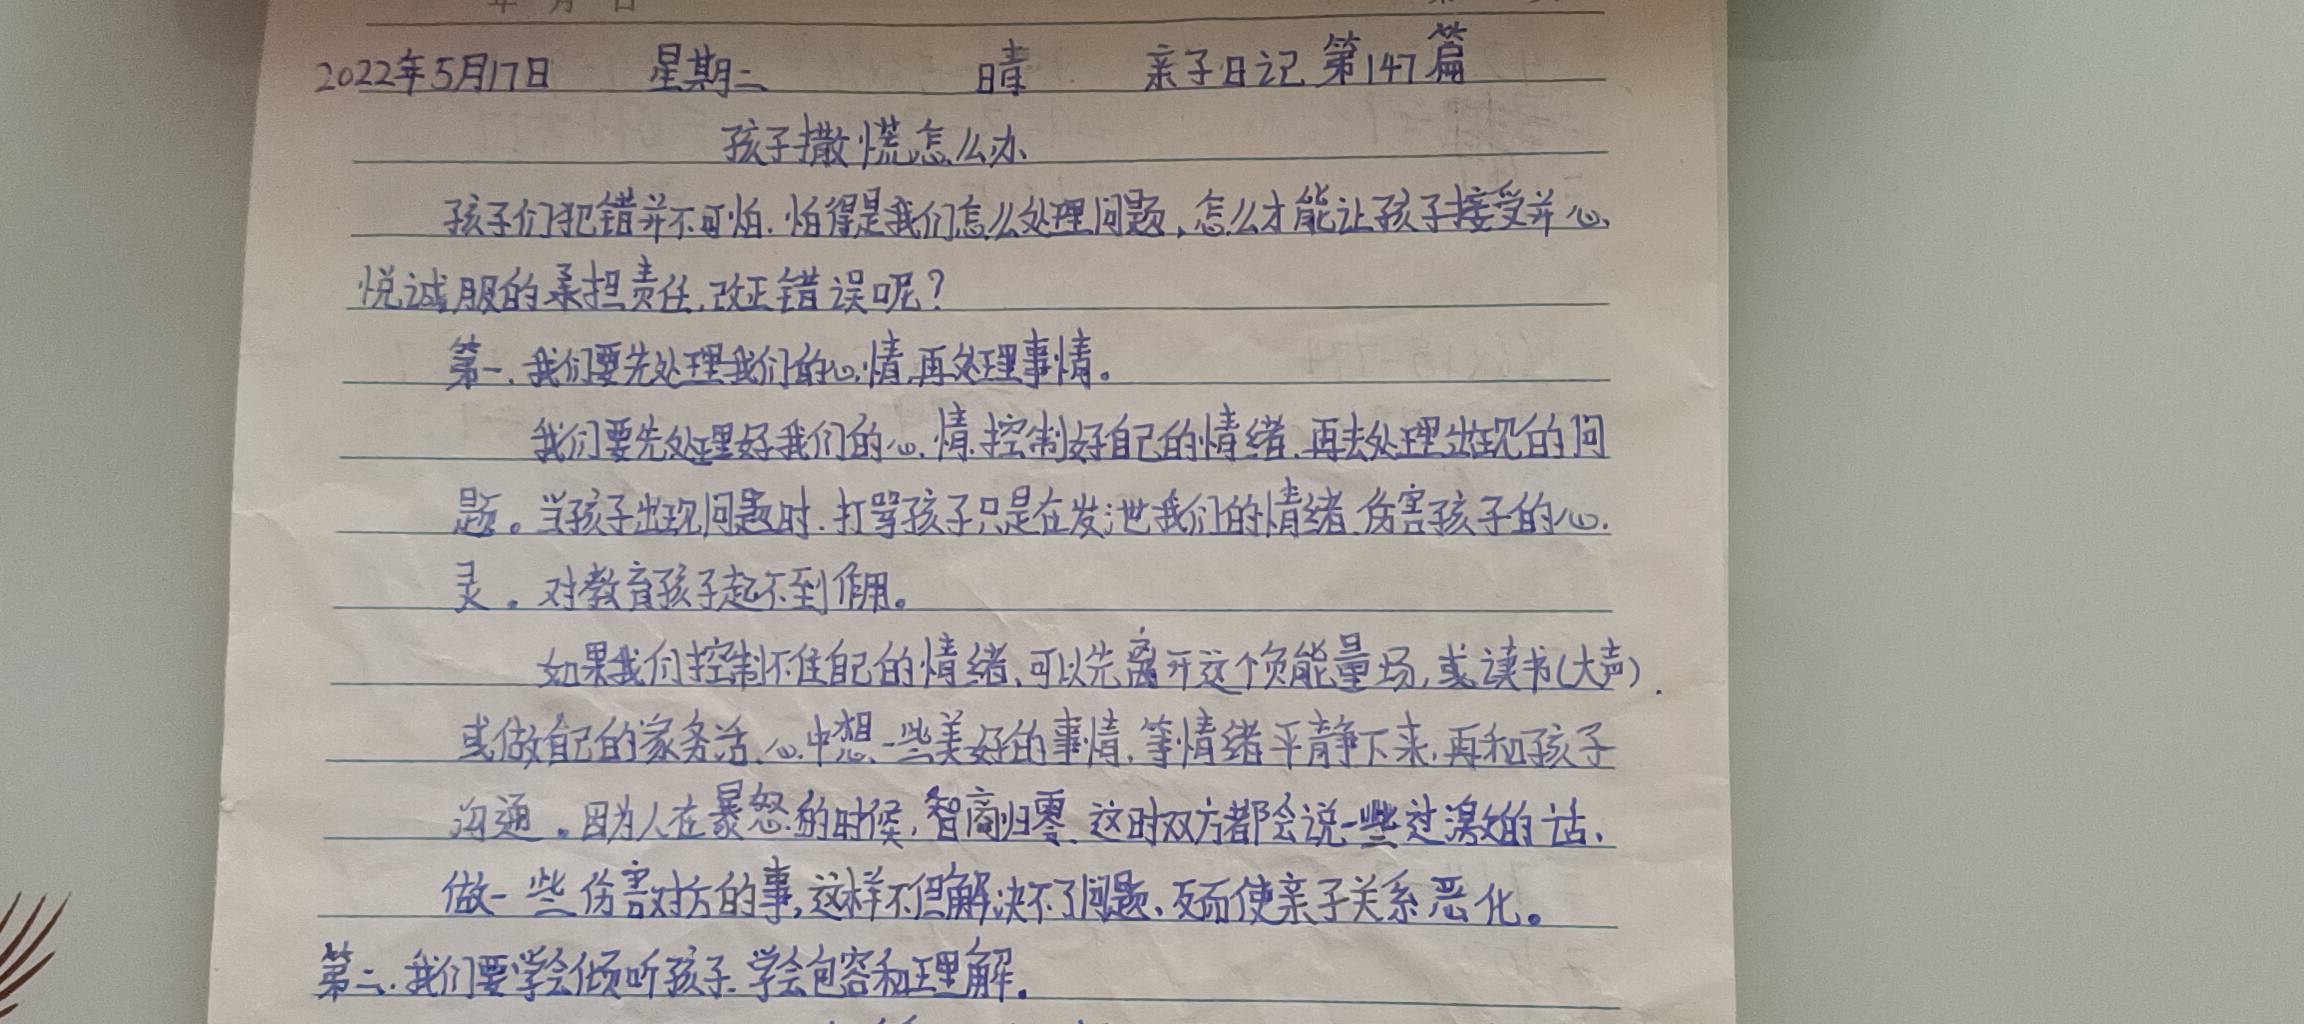 2022年5月17日 星期二 晴 亲子日记 第147篇
孩子撒慌怎么办
孩子们犯错并不可怕.怕得是我们怎么处理问题,怎么才能让孩子接受并心
悦诚服的承担责任,改正错误呢?
第一.我们要先处理我们的心情,再处理事情。
我们要先处理好我们的心情.控制好自己的情绪.再去处理出现的问
题。当孩子出现问题时.打骂孩子只是在发泄我们的情绪.伤害孩子的心
灵。对教育孩子起不到作用。
如果我们控制不住自己的情绪、可以先离开这个负能量场,或读书(大声).
或做自己的家务活、心中想一些美好的事情,等情绪平静下来,再和孩子
沟通。因为人在暴怒的时候,智商归零.这时双方都会说一些过激的话、
做一些伤害对方的事,这样不但解决不了问题、反而使亲子关系恶化。
第二.我们要学会倾听孩子.学会包容和理解.